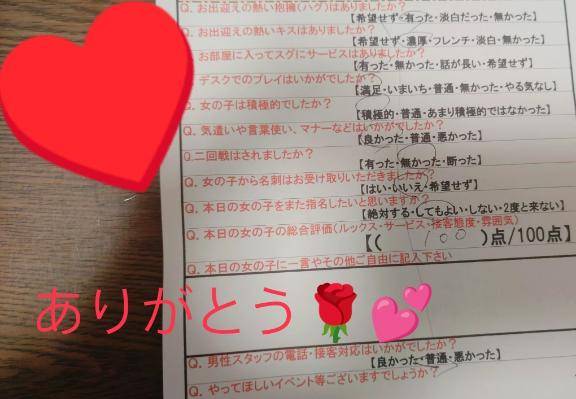 Q. お出迎えの熱い抱擁(ハグ)はありましたか?
【希望せず・有った・淡白だった・無かった】
Q. お出迎えの熱いキスはありましたか?
【希望せず・濃厚・フレンチ・淡白・無かった】
お部屋に入ってスグにサービスはありましたか?
【有った・無かった・話が長い・希望せず】
デスクでのプレイはいかがでしたか?
【満足・いまいち・普通・無かった・やる気なし】
Q. 女の子は積極的でしたか?
【積極的・普通・あまり積極的ではなかった】
Q. 気遣いや言葉使い、マナーなどはいかがでしたか?
【良かった・普通・悪かった】
Q.二回戦はされましたか?
【有った・無かった・断った】
Q. 女の子から名刺はお受け取りいただきましたか?
【はい・いいえ・希望せず】
Q. 本日の女の子をまた指名したいと思いますか?
【絶対する・してもよい・しない・2度と来ない】
Q. 本日の女の子の総合評価(ルックス・サービス・接客態度・雰囲気)
【( 100 )点/100点】
Q. 本日の女の子に一言やその他ご自由に記入下さい
ありがとう🌹💕
Q. 男性スタッフの電話・接客対応はいかがでしたか?
【良かった・普通・悪かった】
Q. やってほしいイベント等ございますでしょうか?